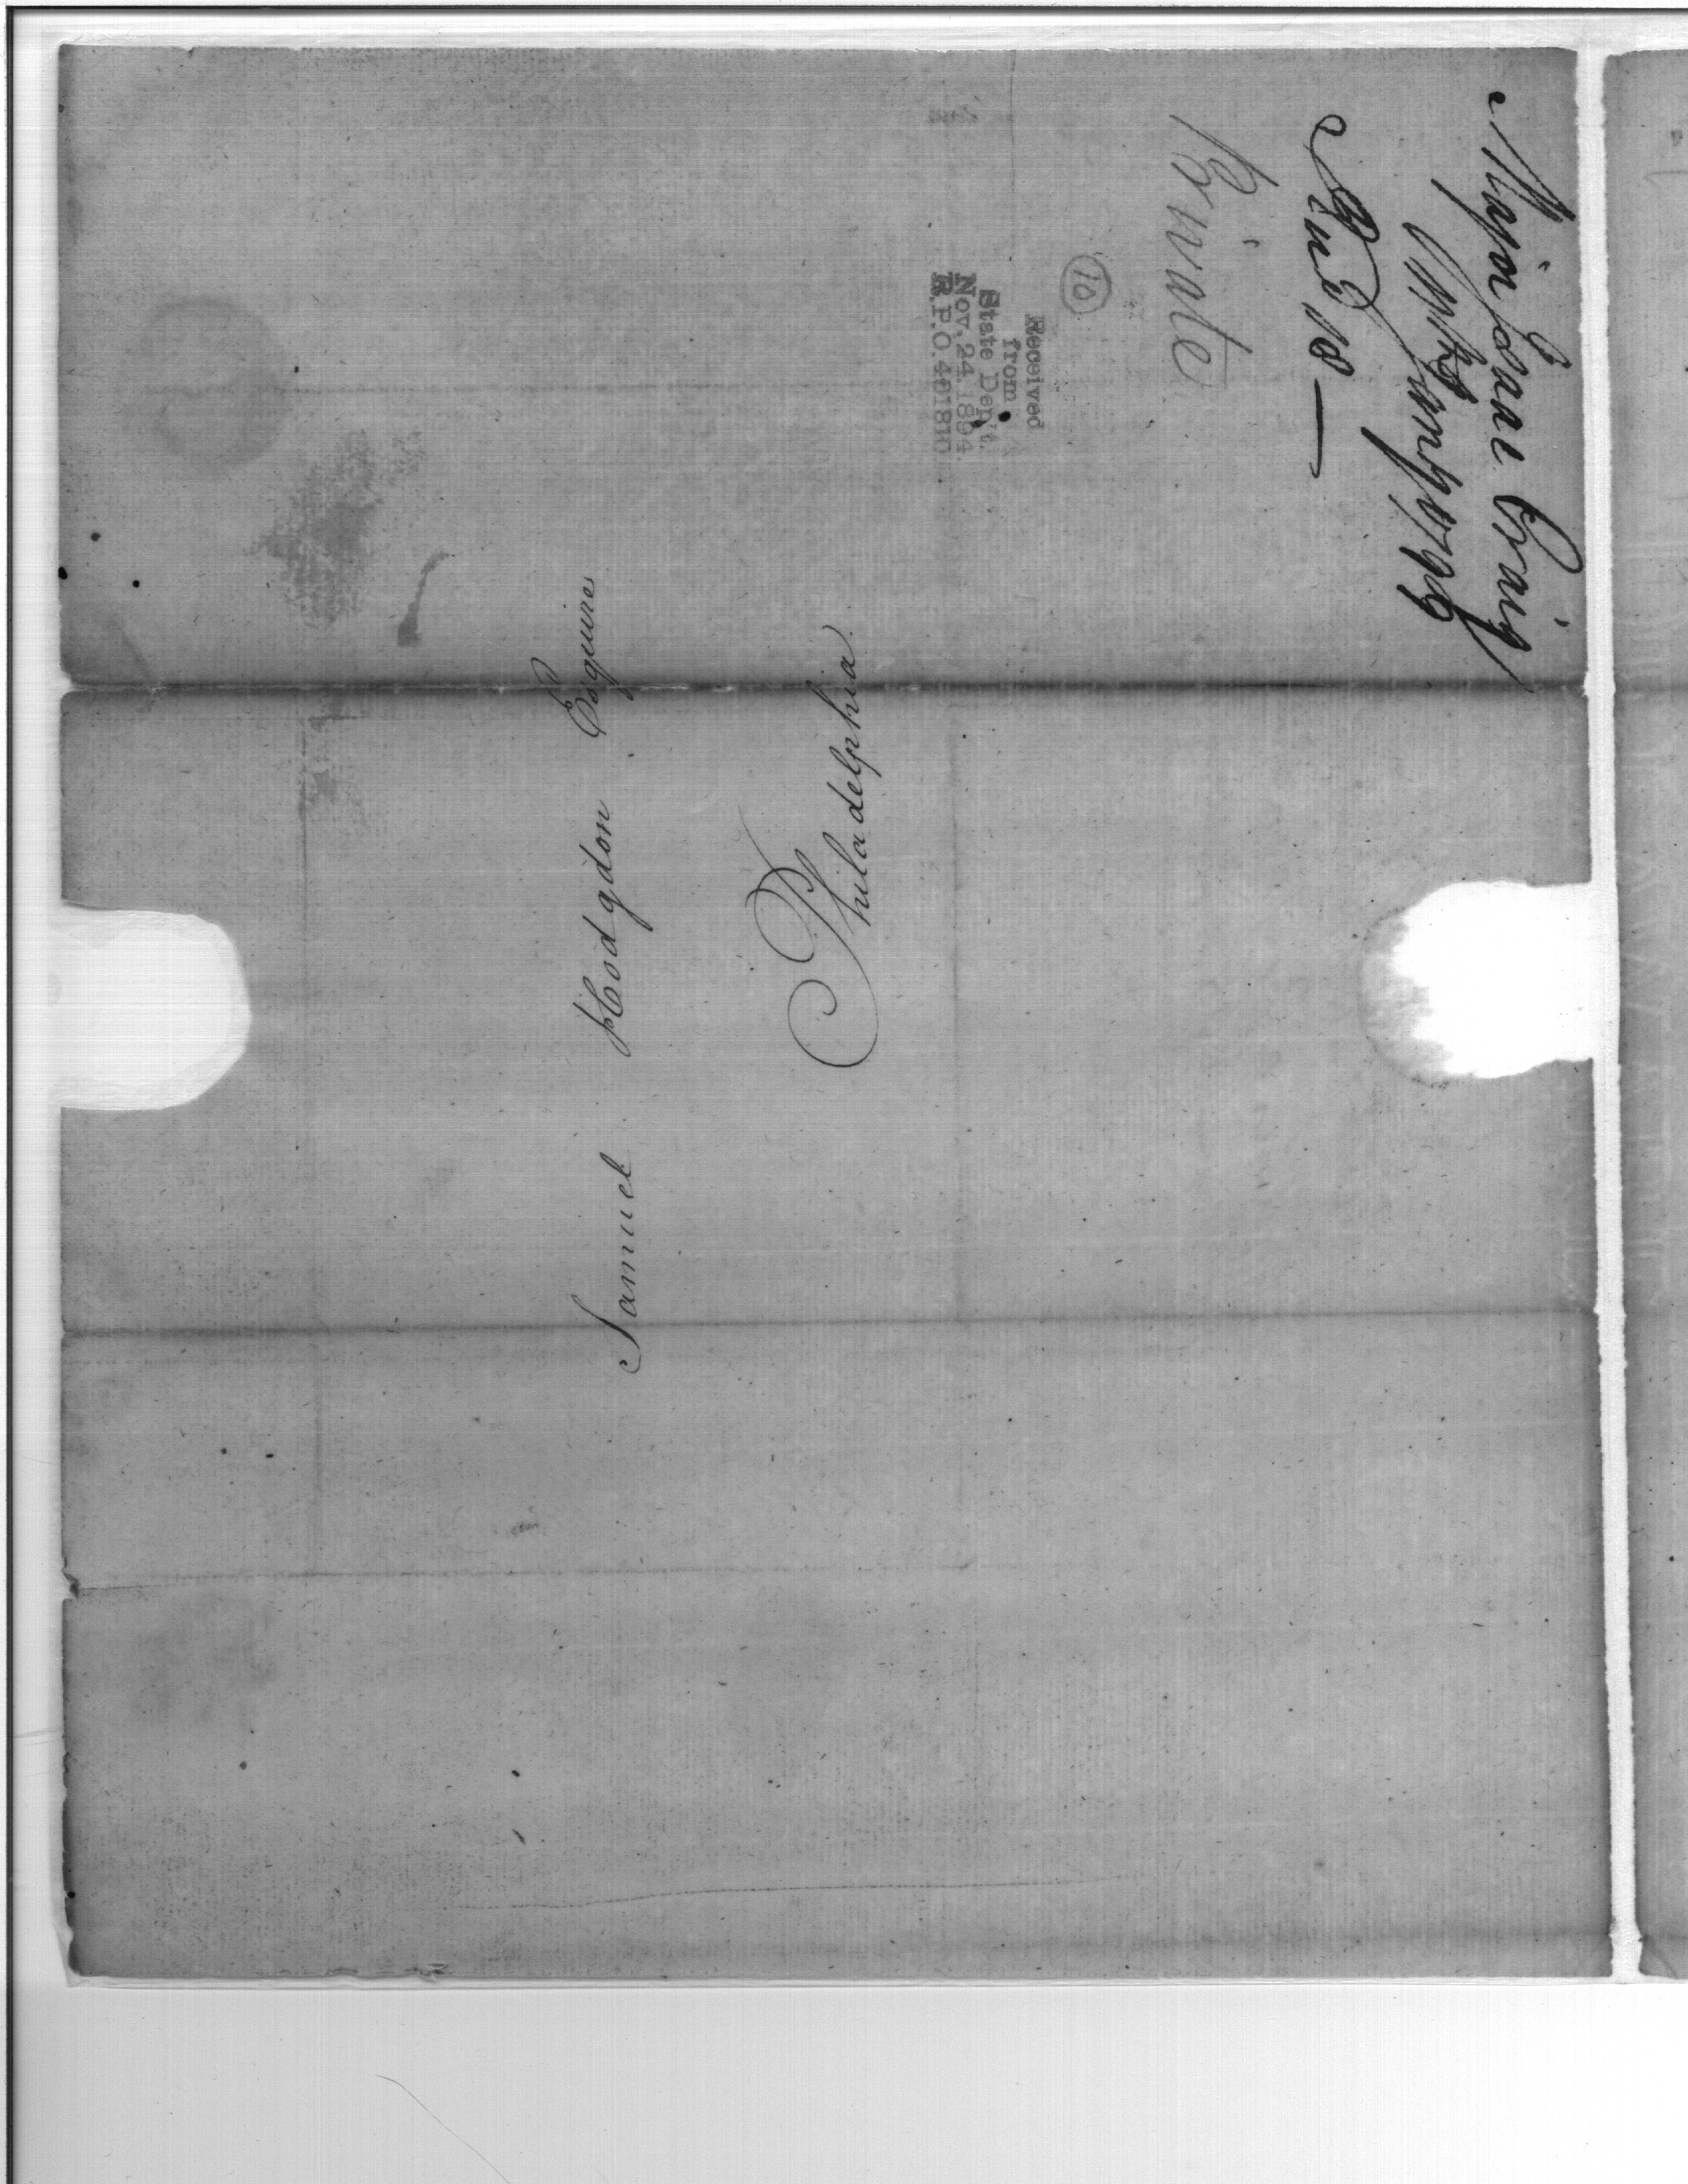 Major Isaac Craig
Private
10
Received
from
State Dep't.
Nov. 24, 1894.
R.P.O. 401810
Samuel Hodgdon Esquire
Philadelphia